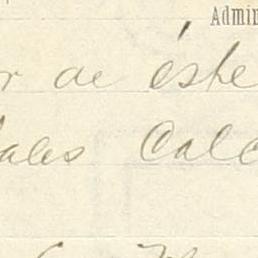 Admin
r de éste
ales Calc